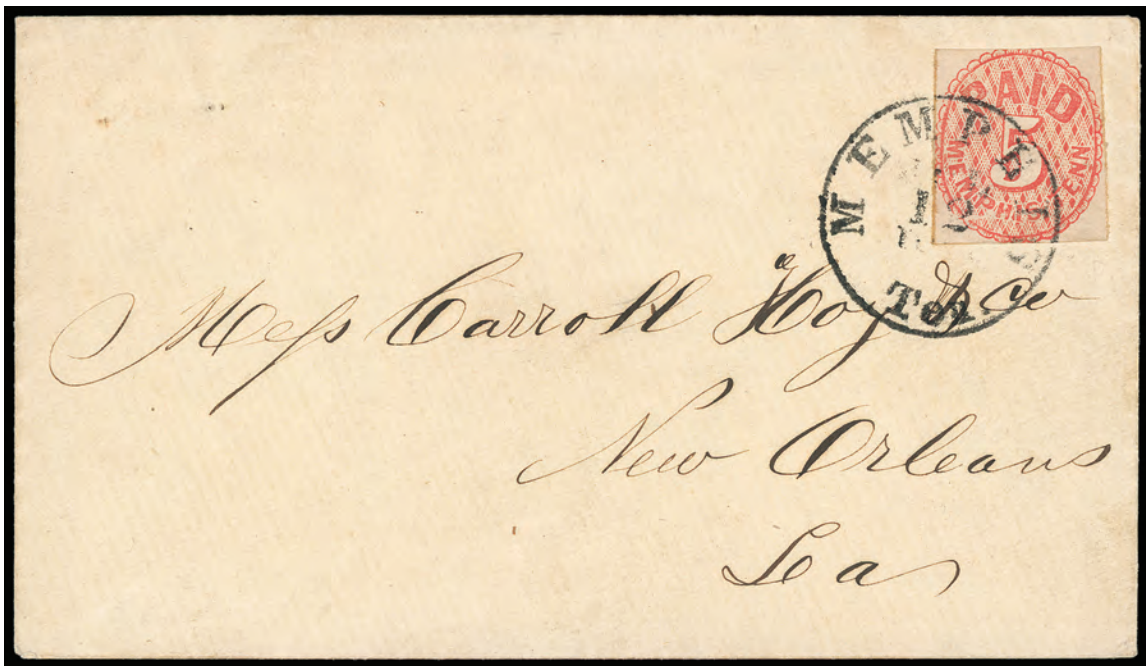 PAID
5
MEMPHIS TENN
MEMPHIS
Ten.
Mess Carroll Hoy & Co
New Orleans
La